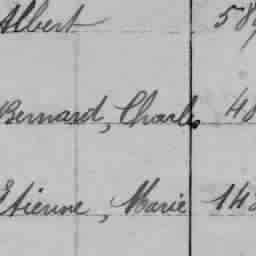 Albert 58
Bernard, Charles 48
Etienne, Marie 142